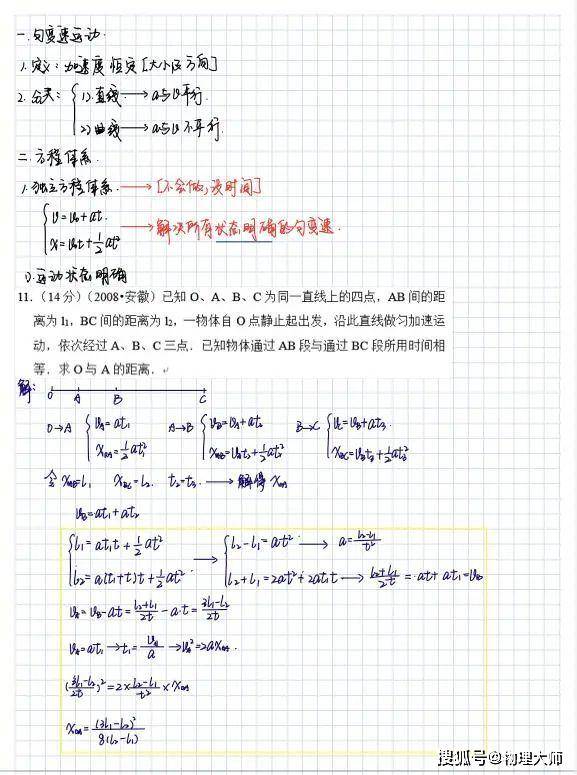 一.匀变速运动.
1.定义:加速度恒定[大小&方向]
2.分类: { 1).直线 → a与v平行.
2)曲线 → a与v不平行.
二.方程体系.
1.独立方程体系. → [不会做,没时间]
{ v=v₀+at.
x=v₀t+½at² → 解决所有状态明确的匀变速.
1).运动状态明确
11.(14 分)(2008•安徽)已知 O、A、B、C 为同一直线上的四点,AB 间的距
离为 l₁,BC 间的距离为 l₂,一物体自 O 点静止起出发,沿此直线做匀加速运
动,依次经过 A、B、C 三点.已知物体通过 AB 段与通过 BC 段所用时间相
等.求 O 与 A 的距离.
解: O A B C
O→A { v_A=at₁ A→B { v_B=v_A+at₂ B→C { v_C=v_B+at₃.
x_OA=½at₁² x_AB=v_At₂+½at₂² x_BC=v_Bt₃+½at₃²
令 x_AB=l₁ x_BC=l₂. t₂=t₃. → 解得 x_OA
v_B=at₁+at₂
{ l₁=at₁t+½at² → { l₂-l₁=at² → a=(l₂-l₁)/t²
l₂=a(t₁+t)t+½at² l₂+l₁=2at²+2at₁t → (l₂+l₁)/2t=at+at₁=v_B
v_A=v_B-at=(l₂+l₁)/2t-a·t=(3l₁-l₂)/2t
v_A=at₁→t₁=v_A/a→v_A²=2ax_OA.
((3l₁-l₂)/2t)²=2×(l₂-l₁)/t²×x_OA
x_OA=(3l₁-l₂)²/8(l₂-l₁)
搜狐号@物理大师